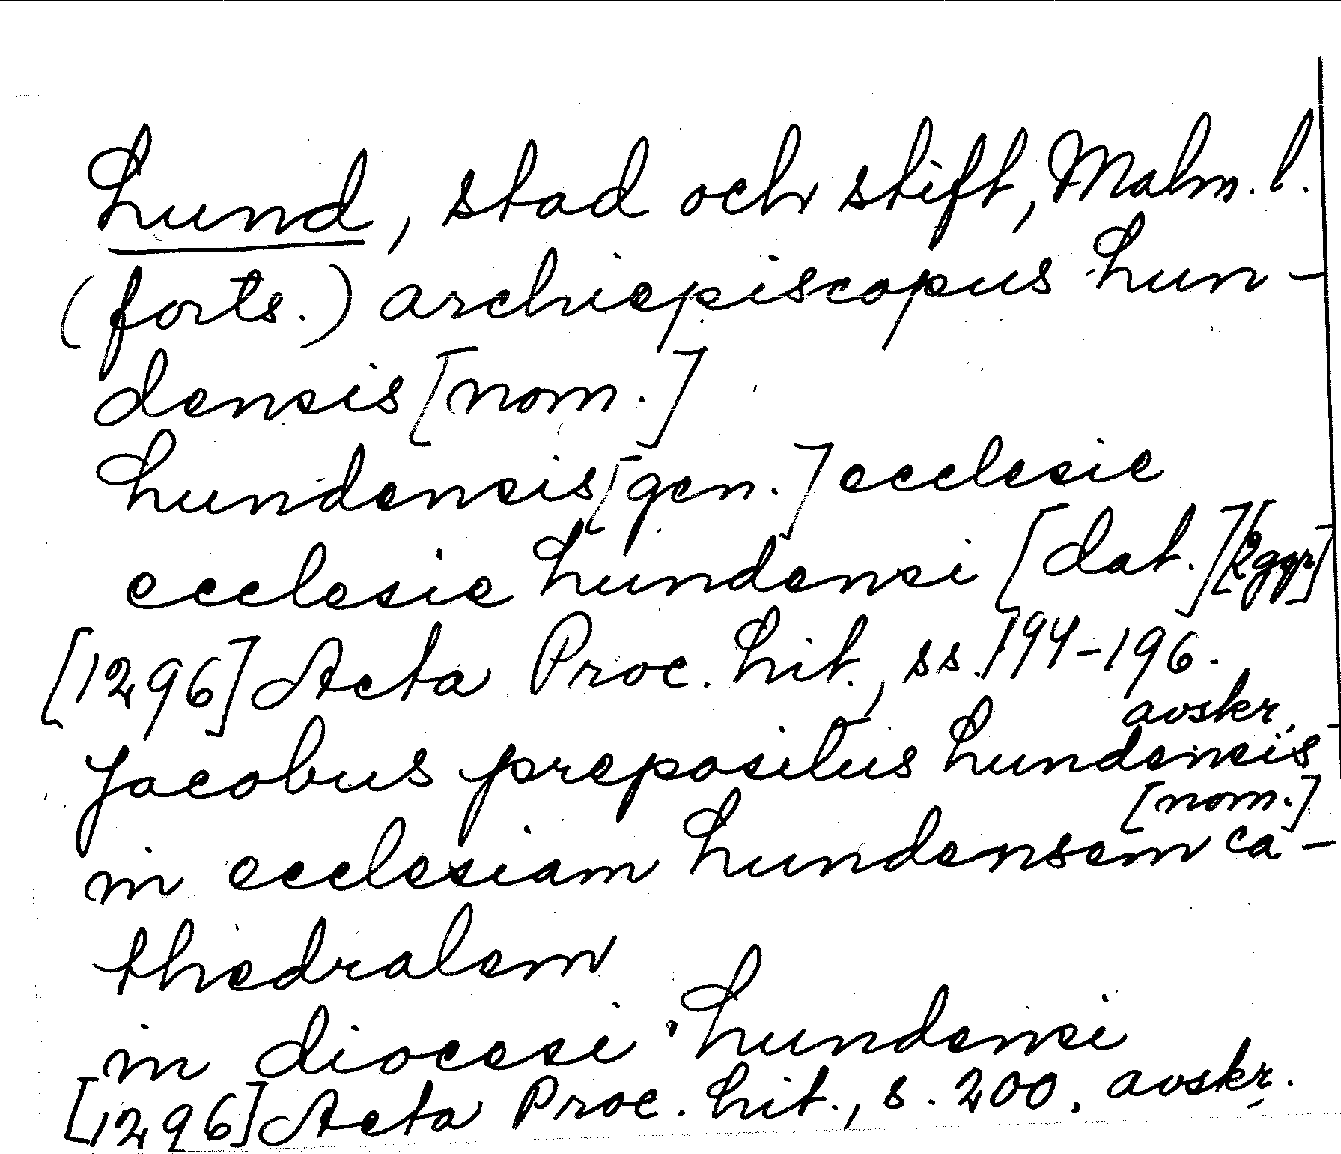 Lund, stad och stift, Malm. l.
(forts.) archiepiscopus Lun-
densis [nom.]
Lundensis [gen.] ecclesie
ecclesie Lundensi [dat.] [2ggr]
[1296] Acta Proc. Lit., ss. 194-196.
avskr.
Jacobus prepositus Lundensis
[nom.]
in ecclesiam Lundensem ca-
thedralem
in diocesi Lundensi
[1296] Acta Proc. Lit., s. 200. avskr.